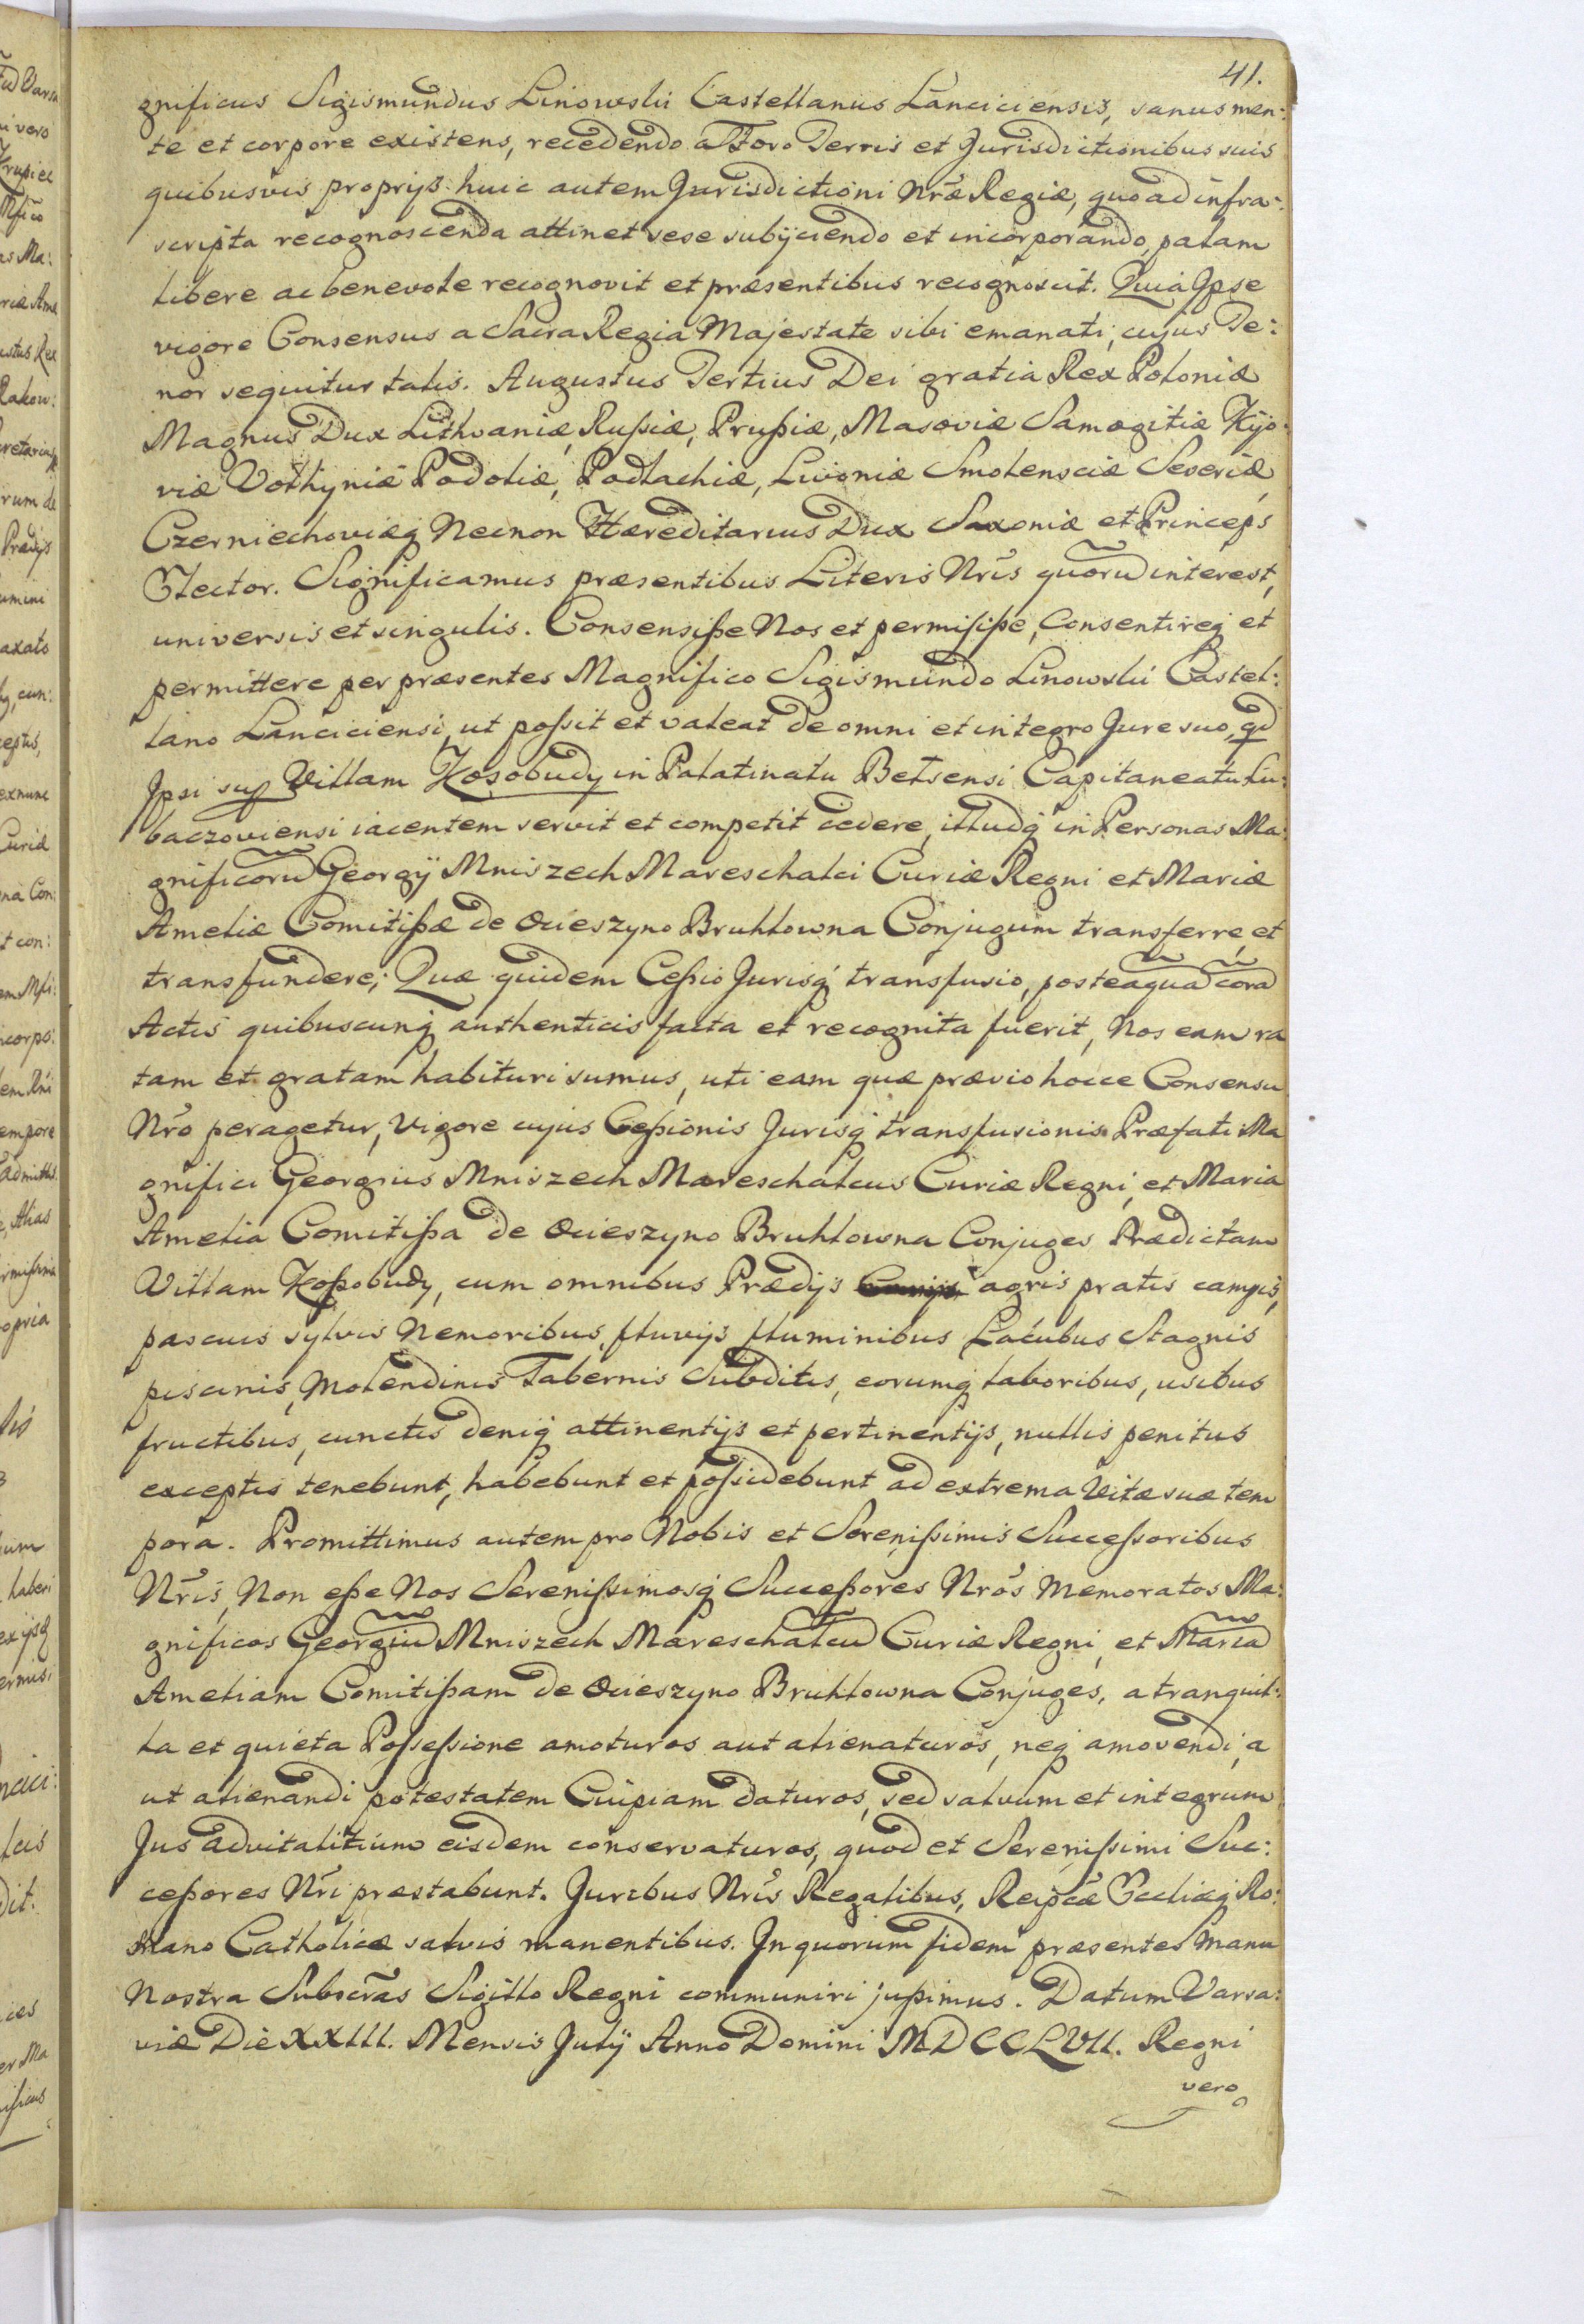 41.
gnificus Sigismundus Linowski Castellanus Lanciciensis, sanus men:
te et corpore existens, recedendo a Foro Terris et Jurisdictionibus suis
quibusvis proprijs huic autem Jurisdictioni Nræ Regiæ, quo ad infra:
scripta recognoscenda attinet sese subijciendo et incorporando, palam
libere ac benevole recognovit et præsentibus recognoscit. Quia Ipse
vigore Consensus a Sacra Regia Majestate sibi emanati, cujus Te:
nor sequitur talis. Augustus Tertius Dei gratia Rex Poloniæ
Magnus Dux Lithvaniæ, Rußiæ, Prußiæ, Masoviæ Samogitiæ Kijo:
viæ Volhyniæ Podoliæ, Podlachiæ, Livoniæ Smolensciæ Severiæ,
Czerniechoviæq Necnon Hæreditarius Dux Saxoniæ et Princeps
Elector. Significamus præsentibus Literis Nris quorũ interest,
universis et singulis. Consensiße Nos et permisiße, Consentireq et
permittere per præsentes Magnifico Sigismundo Linowski Castel:
lano Lanciciensi, ut poßit et valeat de omni et integro Jure suo, qd
Ipsi sup Villam Kosobudy in Palatinatu Belsensi Capitaneatu Lu:
baczoviensi iacentem servit et competit cedere, illudq in Personas Ma:
gnificorũ Georgij Mniszech Mareschalci Curiæ Regni et Mariæ
Ameliæ Comitißæ de Ocieszyno Bruhlowna Conjugum transferre, et
transfundere; Quæ quidem Ceßio Jurisq transfusio, posteaquã corã
Actis quibuscunq authenticis facta et recognita fuerit, Nos eam ra
tam et gratam habituri sumus, uti eam quæ prævio hocce Consensu
Nro peragetur, Vigore cujus Ceßionis Jurisq transfusionis Præfati Ma
gnifici Georgius Mniszech Mareschalcus Curiæ Regni, et Maria
Amelia Comitißa de Ocieszyno Bruhlowna Conjuges Prædictam
Villam Koßobudy, cum omnibus Prædijs agris pratis campis,
pascuis sylvis Nemoribus, fluvijs fluminibus Lacubus Stagnis
piscinis, Molendinis Tabernis Subditis, eorumq laboribus, usibus
fructibus, cunctis deniq attinentijs et pertinentijs, nullis penitus
exceptis tenebunt, habebunt et poßidebunt ad extrema Vitæ suæ tem
pora. Promittimus autem pro Nobis et Serenißimis Succeßoribus
Nris, Non eße Nos Serenißimosq Succeßores Nros Memoratos Ma:
gnificos Georgiũ Mniszech Mareschalcũ Curiæ Regni, et Mariã
Ameliam Comitißam de Ocieszyno Bruhlowna Conjuges, a tranquil:
la et quieta Poßeßione amoturos aut alienaturos, neq amovendi, a
ut alienandi potestatem Cuipiam daturos, sed salvum et integrum
Jus advitalitium eisdem conservaturos, quod et Serenißimi Suc:
ceßores Nri præstabunt. Juribus Nris Regalibus, Reipcæ Eccliæq Ro:
mano Catholicæ salvis manentibus. In quorum fidem præsentes Manu
Nostra Subscras Sigillo Regni communiri jußimus. Datum Varsa:
viæ Die XXIII. Mensis Julij Anno Domini MDCCLVII. Regni
vero